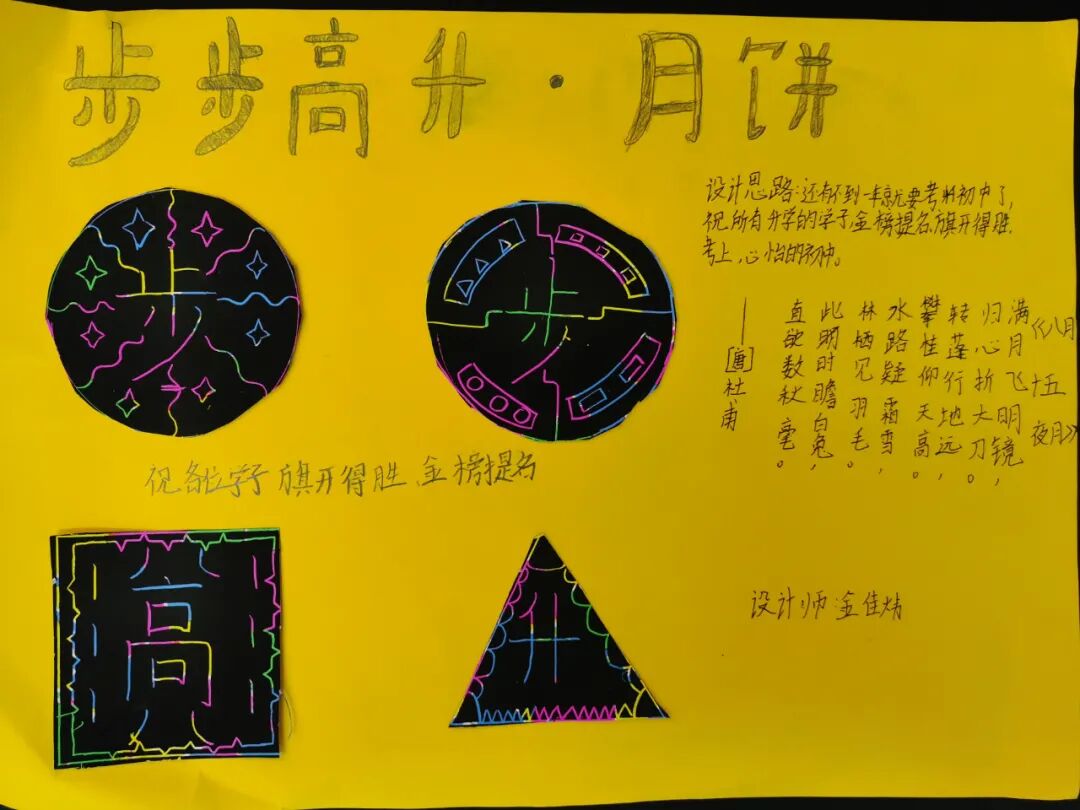 步步高升·月饼
设计思路:还有不到一年就要考初中了,
祝所有升学的学子,金榜提名,旗开得胜.
考上心怡的初中。
《八月十五夜月》
满月飞明镜,
归心折大刀。
转蓬行地远,
攀桂仰天高。
水路疑霜雪,
林栖见羽毛。
此明时瞻白兔,
直欲数秋毫。
——[唐]杜甫
步
步
祝各位学子 旗开得胜、金榜提名
高
升
设计师:金佳